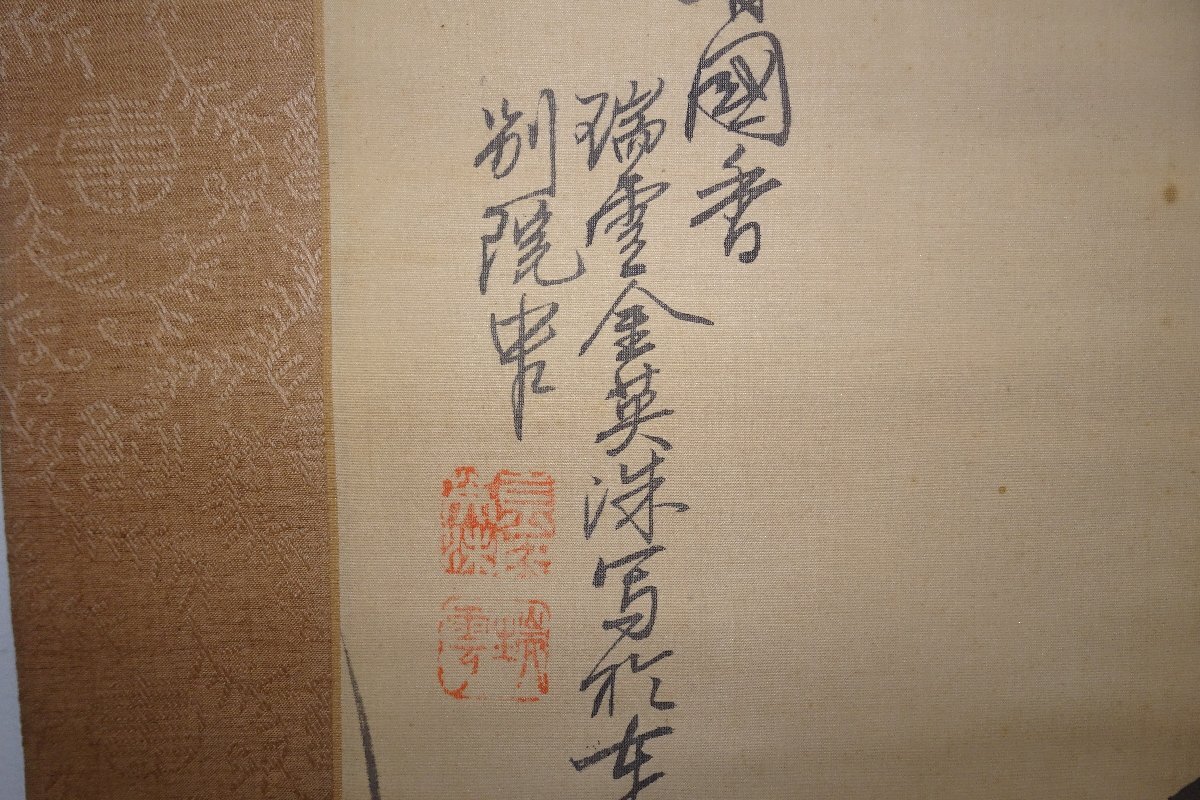 國香
瑞雲金英洙写於东
别院中
瑞雲